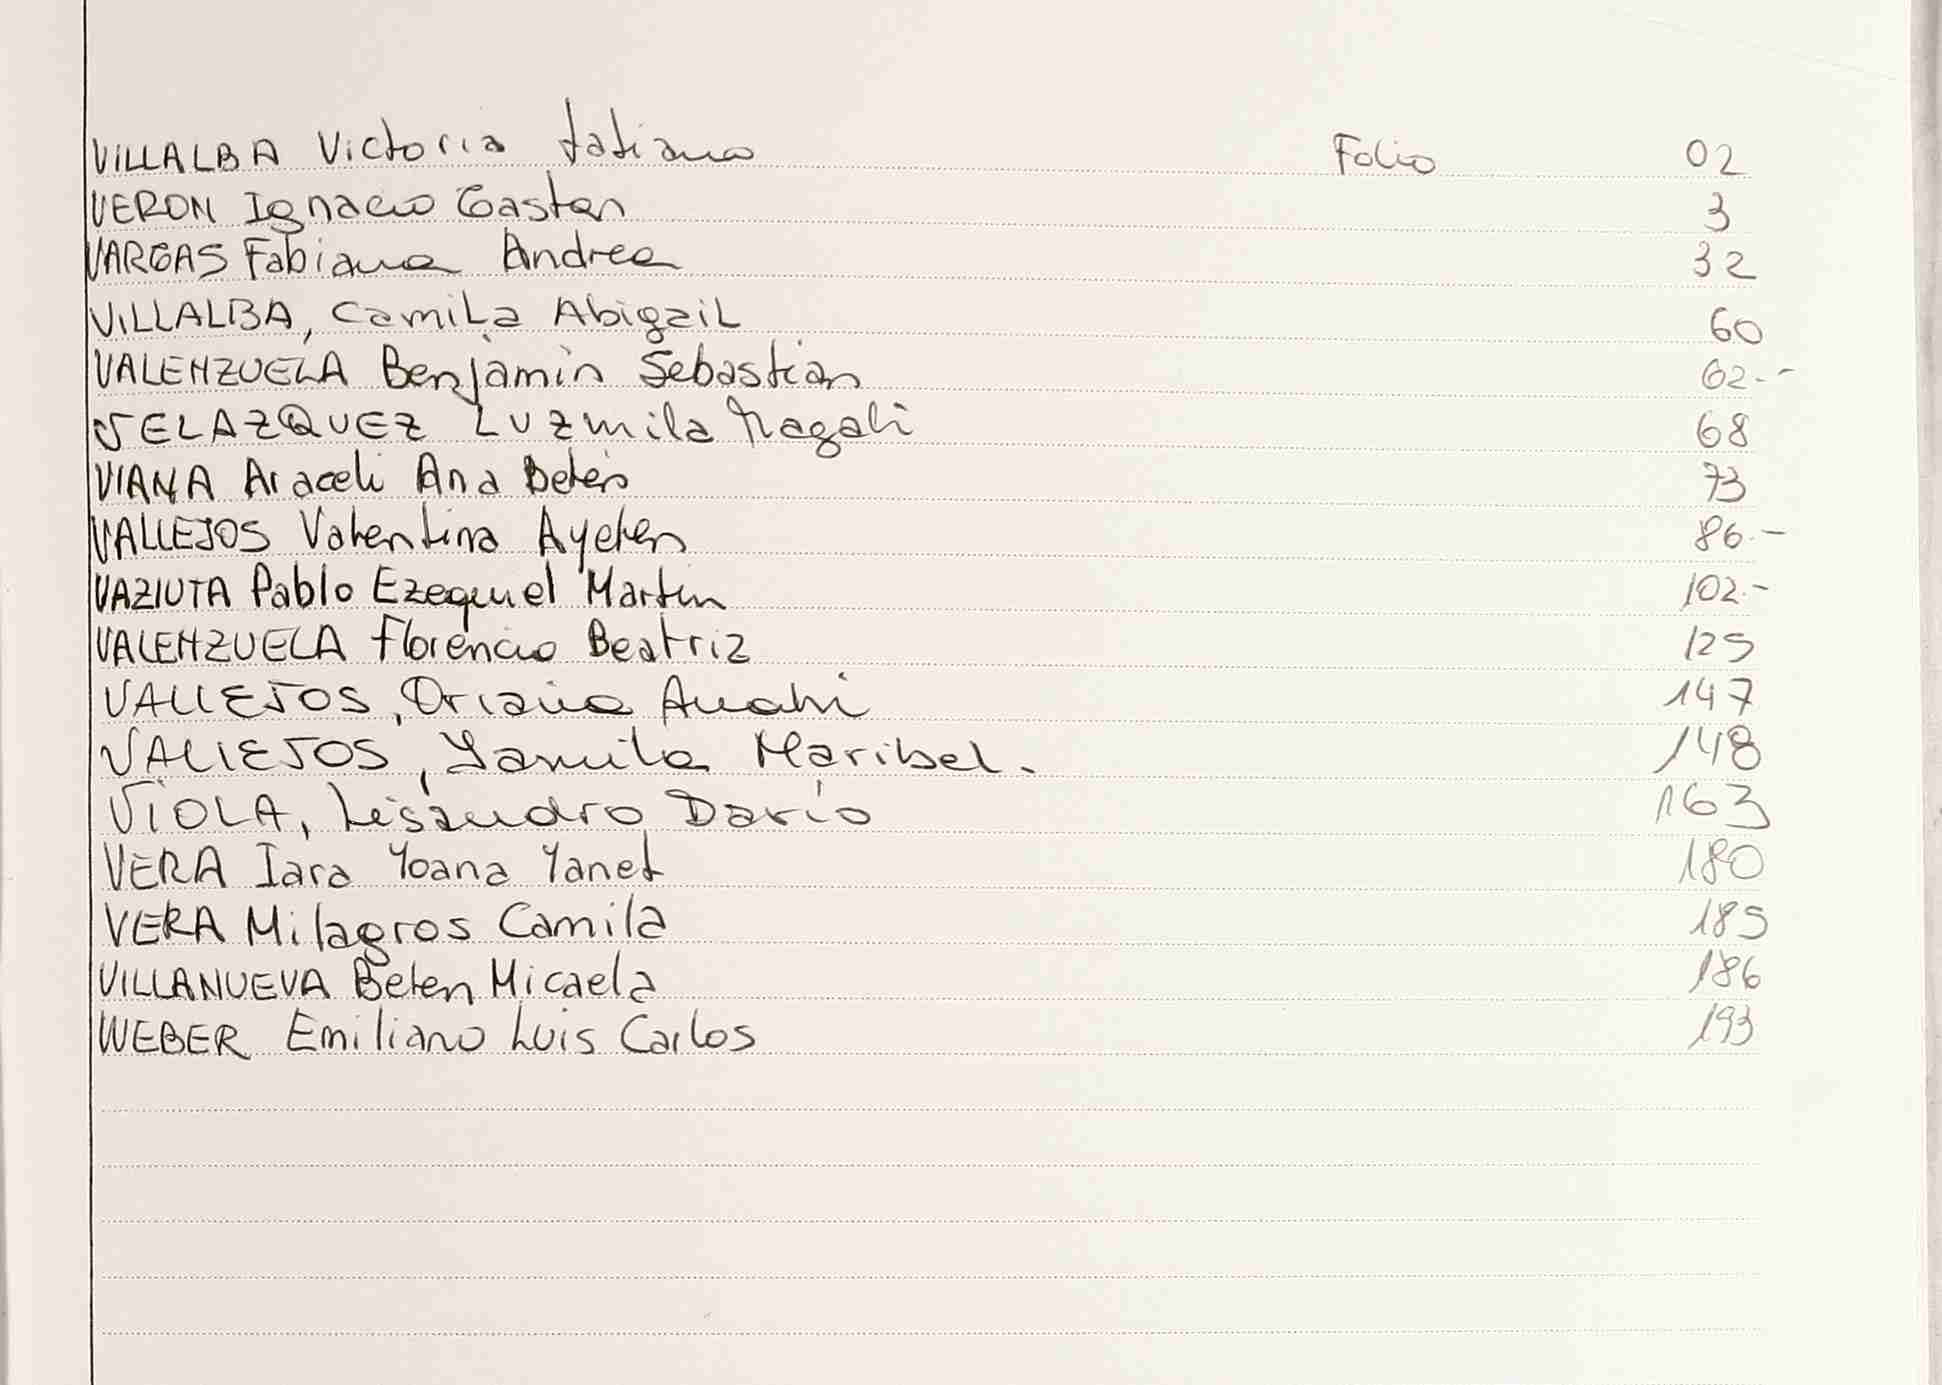 VILLALBA Victoria Tatiana Folio 02
VERON Ignacio Gaston 3
VARGAS Fabiana Andrea 32
VILLALBA, Camila Abigail 60
VALENZUELA Benjamin Sebastian 62.-
VELAZQUEZ Luzmila Magali 68
VIANA Araceli Ana Belén 73
VALLEJOS Valentina Ayelen 86.-
VAZIUTA Pablo Ezequiel Martin 102.-
VALENZUELA Florencia Beatriz 125
VALLEJOS, Oriana Anahi 147
VALLEJOS, Yamila Maribel. 148
VIOLA, Lisandro Darío 163
VERA Iara Yoana Yanet 180
VERA Milagros Camila 185
VILLANUEVA Belen Micaela 186
WEBER Emiliano Luis Carlos 193